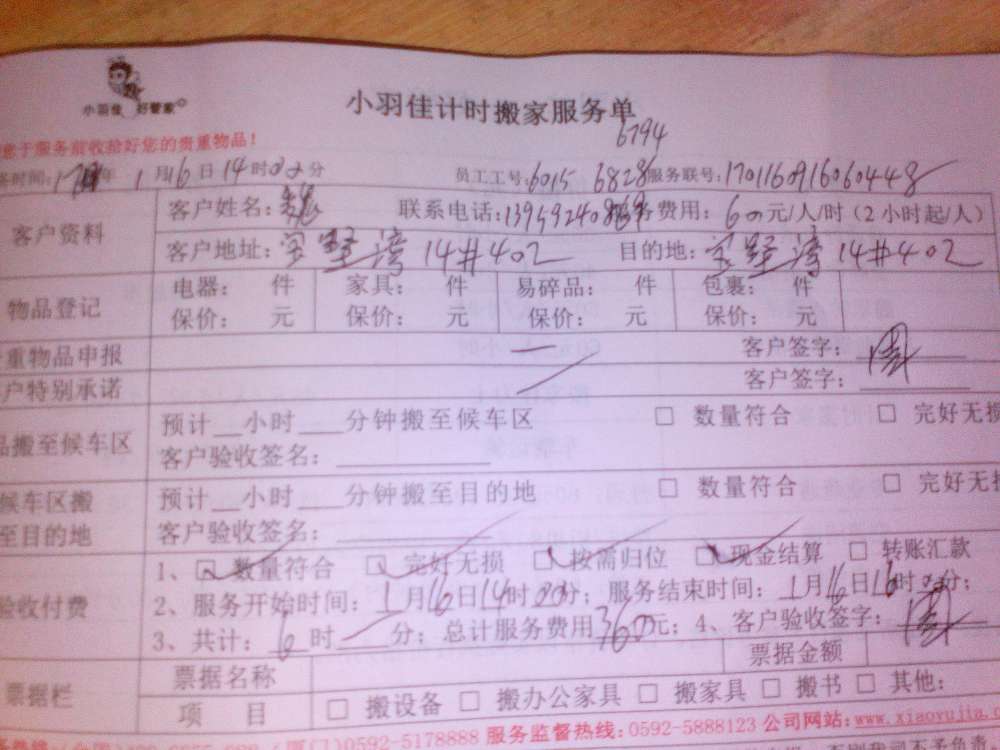 小羽佳 好管家
小羽佳计时搬家服务单
于服务前收拾好您的贵重物品！
6794
务时间：17年1月16日14时00分 员工工号：6015 6828 服务联号：1701160916060448
客户资料 客户姓名：魏 联系电话： 服务费用：60元/人/时（2小时起/人）
客户地址：14#402 目的地：14#402
物品登记 电器： 件 家具： 件 易碎品： 件 包裹： 件
保价： 元 保价： 元 保价： 元 保价： 元
重物品申报 — 客户签字：
户特别承诺 客户签字：
品搬至候车区 预计__小时___分钟搬至候车区 □ 数量符合 □ 完好无损
客户验收签名：
候车区搬至目的地 预计__小时___分钟搬至目的地 □ 数量符合 □ 完好无损
客户验收签名：
验收付费 1、☑ 数量符合 ☑ 完好无损 ☑ 按需归位 ☑ 现金结算 □ 转账汇款
2、服务开始时间：1月16日14时00分；服务结束时间：1月16日16时00分；
3、共计：6时—分；总计服务费用360元；4、客户验收签字：
票据栏 票据名称 票据金额
项 目 □ 搬设备 □ 搬办公家具 □ 搬家具 □ 搬书 □ 其他：
0592-5178888 服务监督热线：0592-5888123 公司网站：www.xiaoyujia.